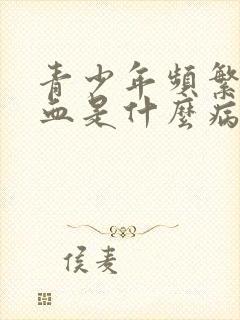 青少年頻繁
血是什麼病
侯麦